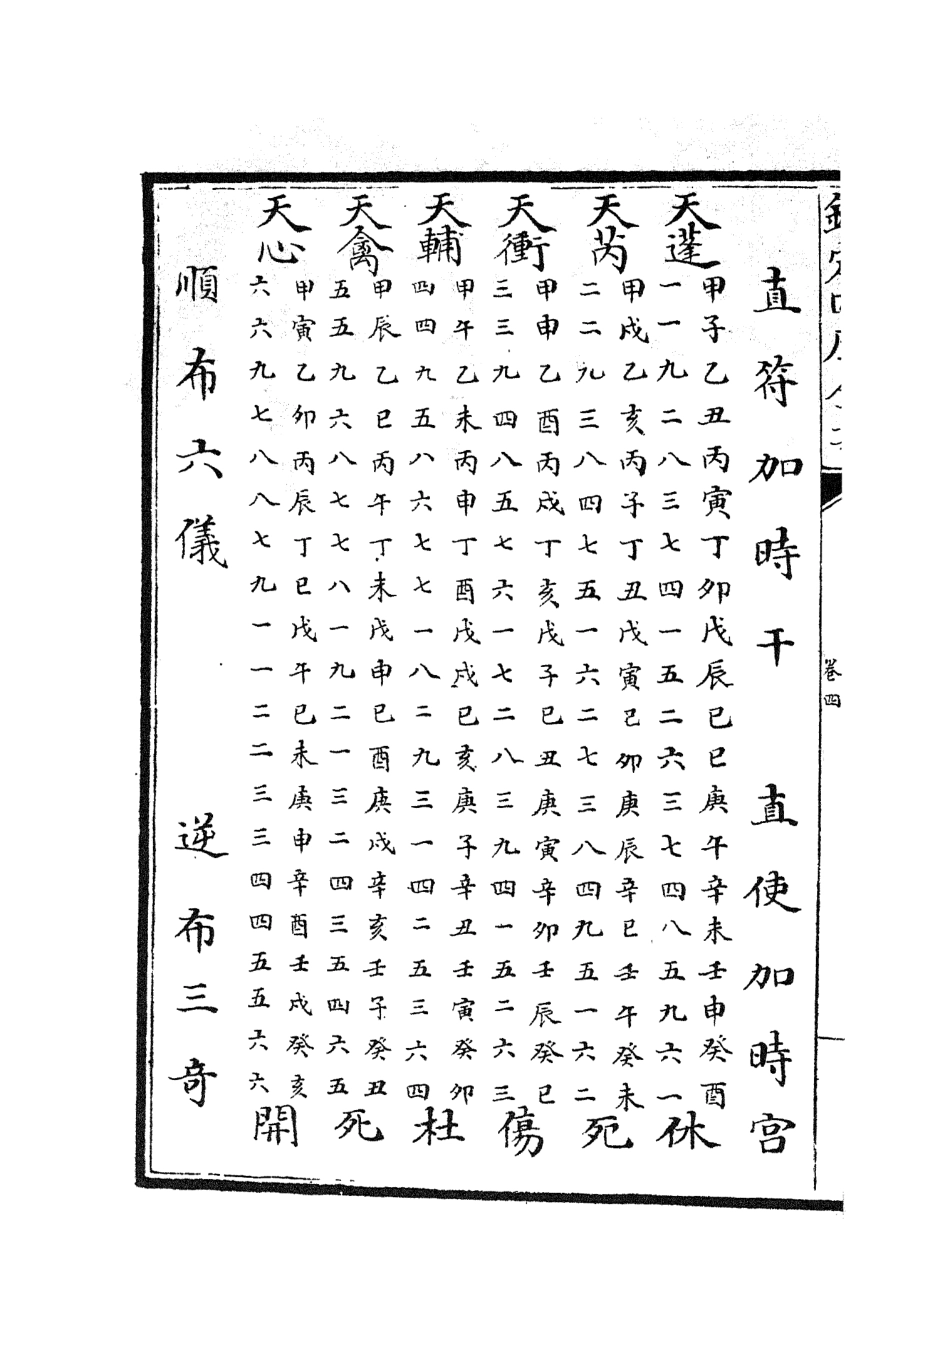 卷四
直符加時干　直使加時宮
天蓬
甲子乙丑丙寅丁卯戊辰己巳庚午辛未壬申癸酉
一一九二八三七四一五二六三七四八五九六一
休
天芮
甲戌乙亥丙子丁丑戊寅己卯庚辰辛巳壬午癸未
二二九三八四七五一六二七三八四九五一六二
死
天衝
甲申乙酉丙戌丁亥戊子己丑庚寅辛卯壬辰癸巳
三三九四八五七六一七二八三九四一五二六三
傷
天輔
甲午乙未丙申丁酉戊戌己亥庚子辛丑壬寅癸卯
四四九五八六七七一八二九三一四二五三六四
杜
天禽
甲辰乙巳丙午丁未戊申己酉庚戌辛亥壬子癸丑
五五九六八七七八一九二一三二四三五四六五
死
天心
甲寅乙卯丙辰丁巳戊午己未庚申辛酉壬戌癸亥
六六九七八八七九一一二二三三四四五五六六
開
順布六儀　逆布三奇